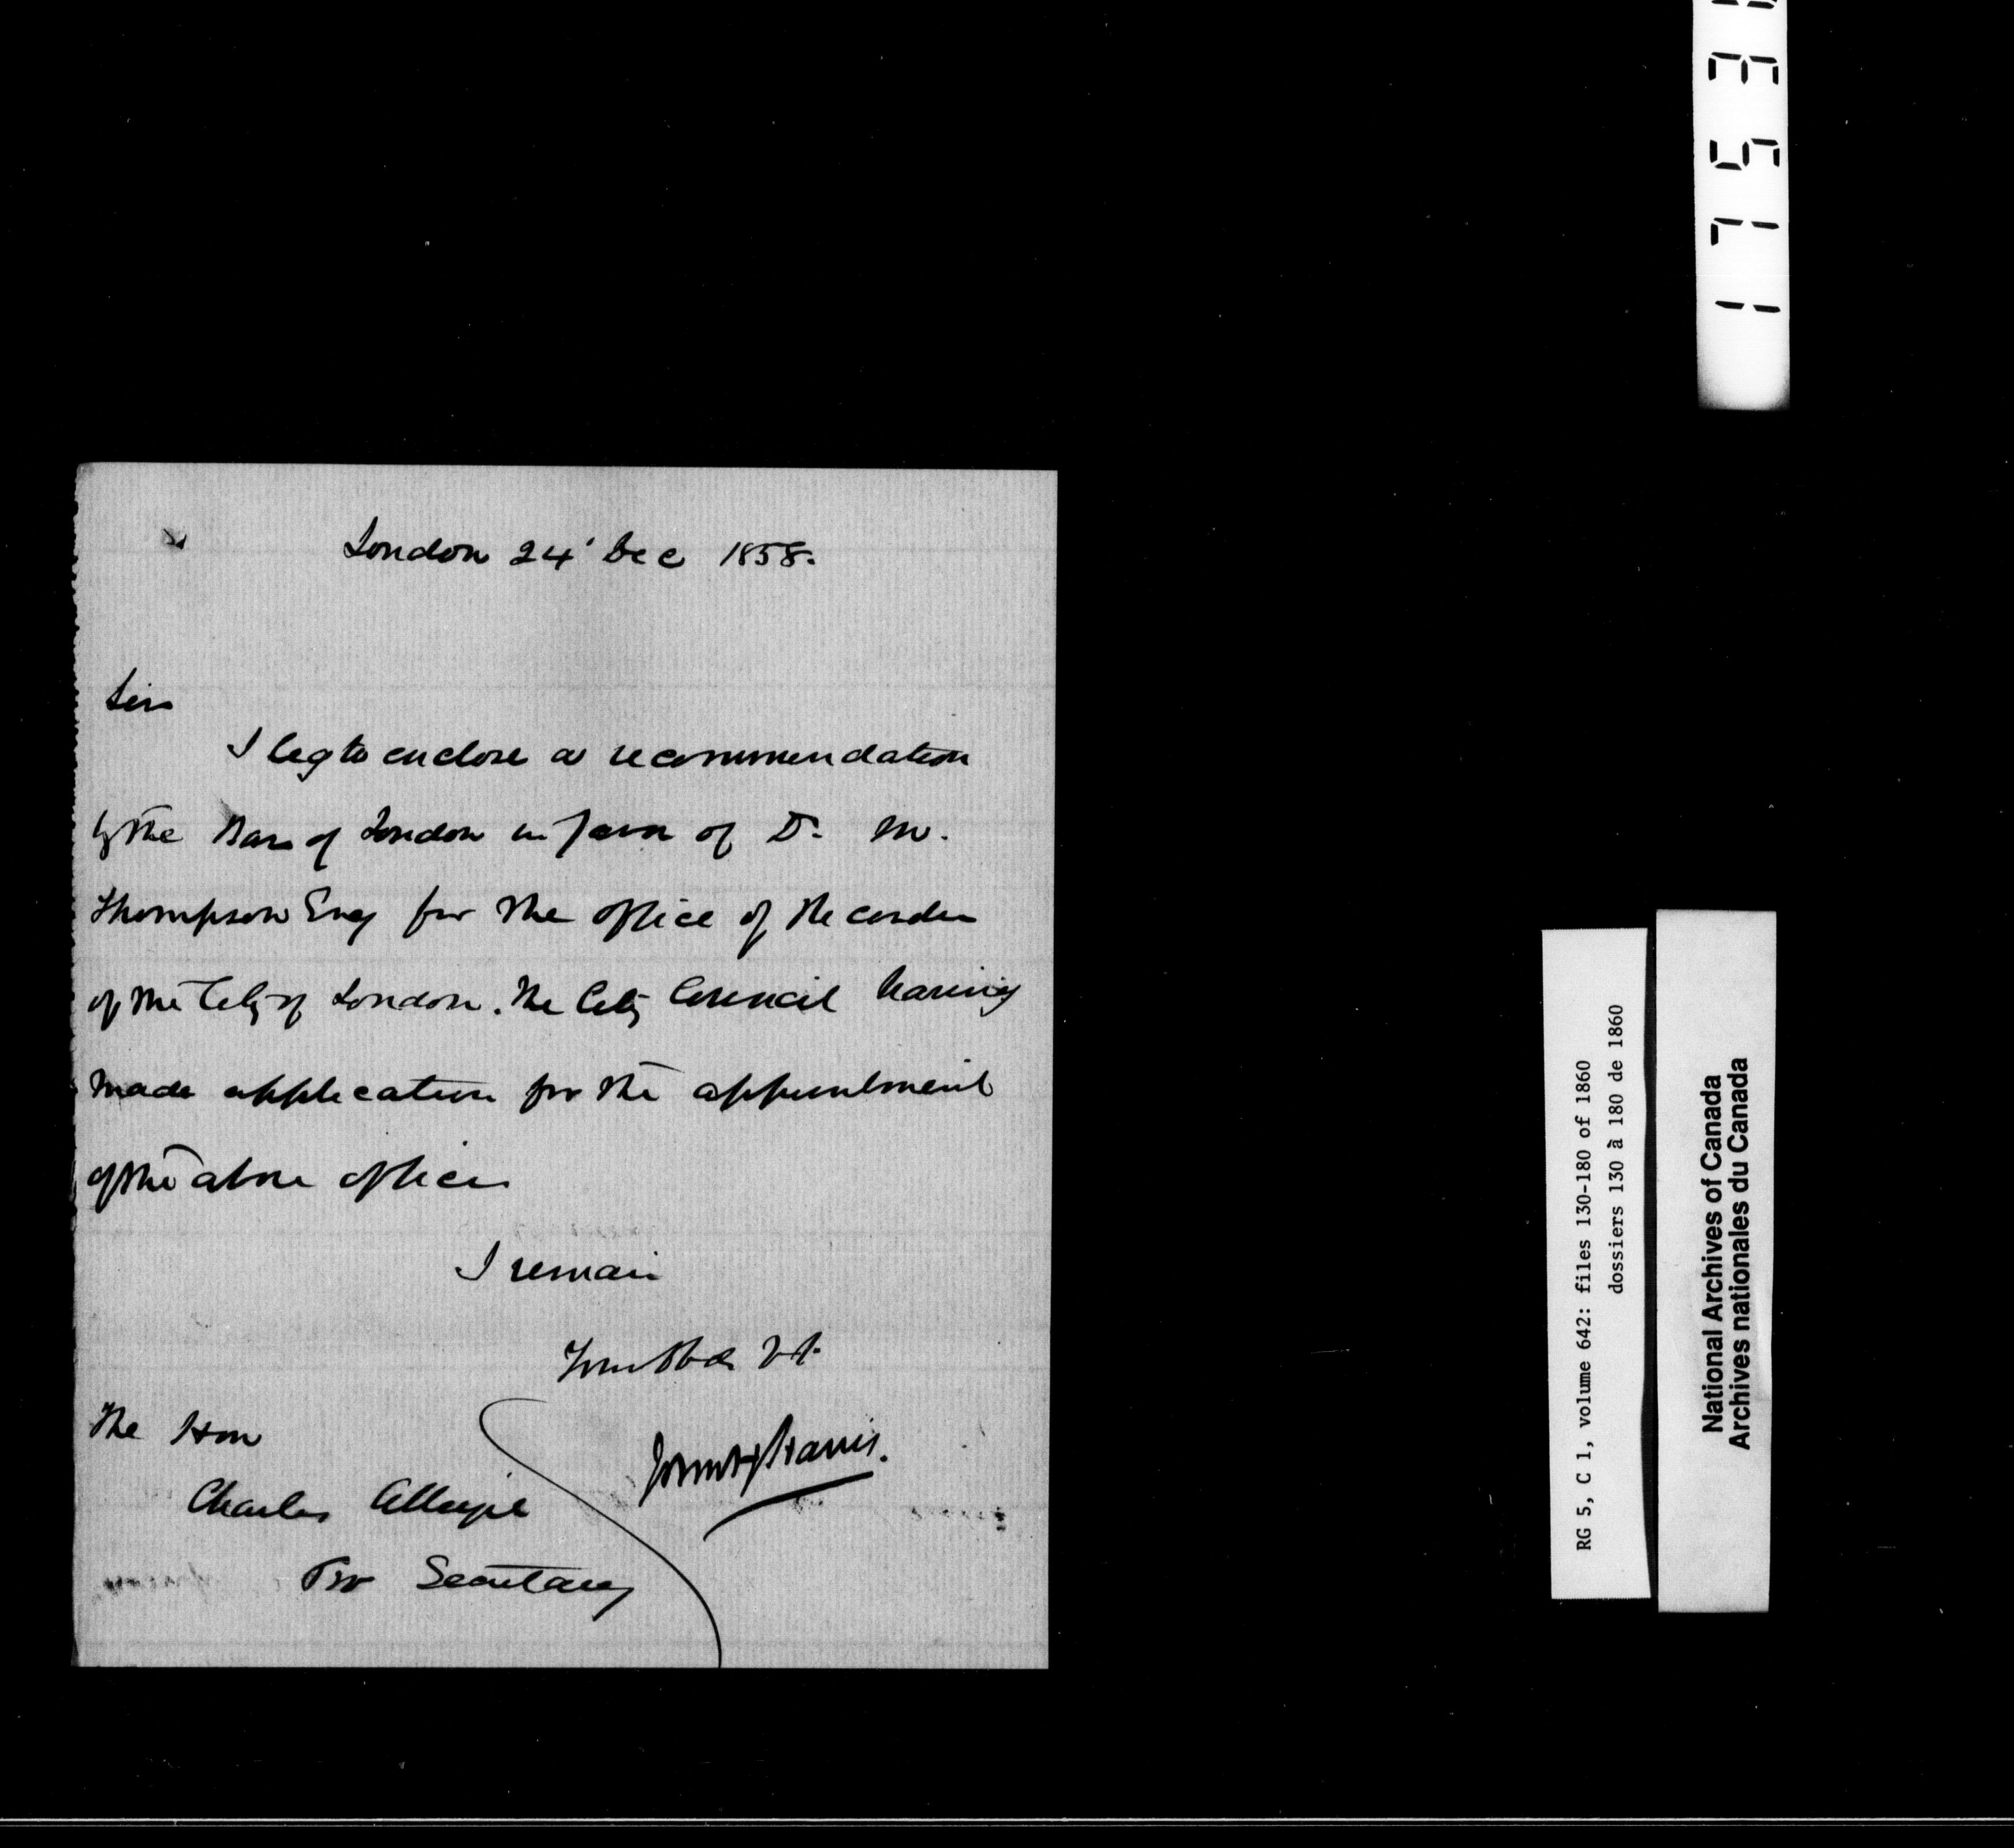 London 24' Dec 1858.
Sir
I beg to enclose a recommendation
by the Bar of London in favor of D. M.
Thompson Esq for the office of Recorder
of the City of London. The City Council having
made application for the appointment
of the above office
I remain
Your Obd St
The Hon
Charles Alleyn
Pro Secretary
RG 5, C 1, volume 642: files 130-180 of 1860
dossiers 130 à 180 de 1860
National Archives of Canada
Archives nationales du Canada